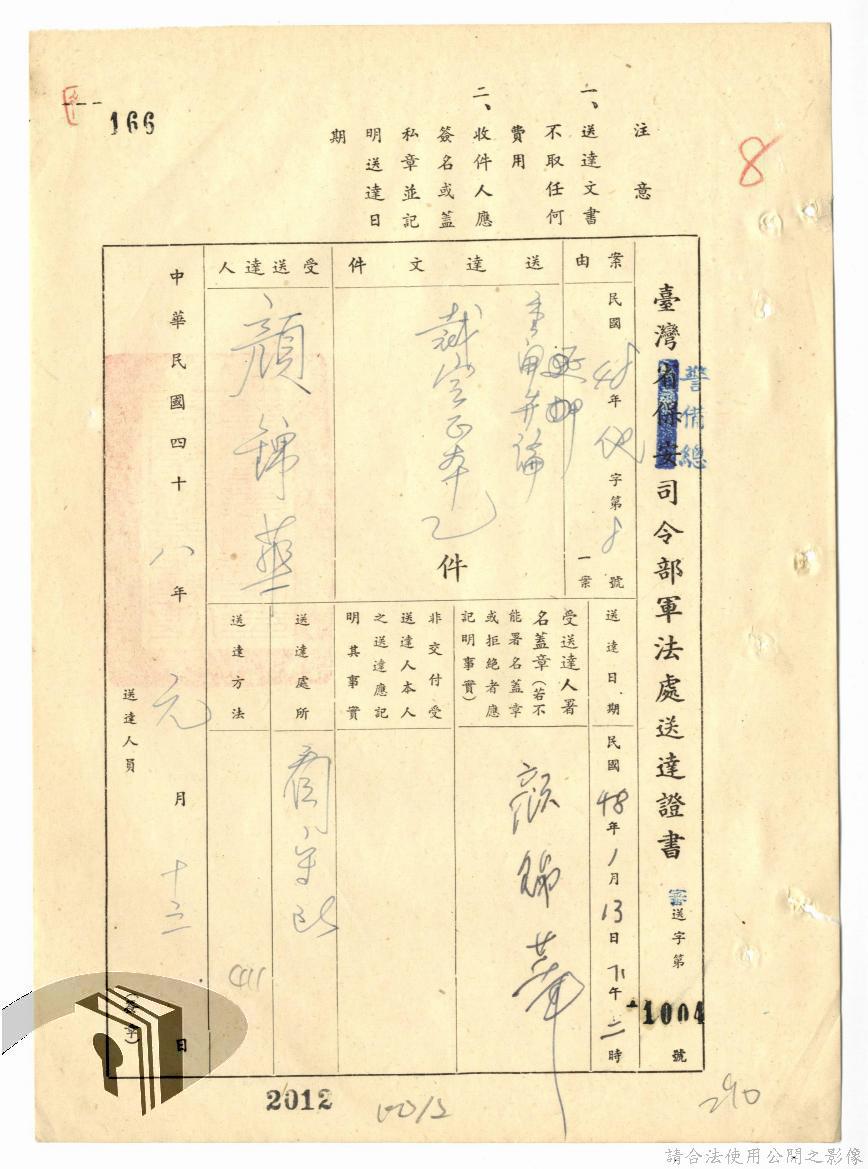 166
8
注意
一、送達文書
不取任何
費用
二、收件人應
簽名或蓋
私章並記
明送達日
期
臺灣省保安司令部軍法處送達證書
警備總
審送字第
1004
號
案由
民國48年 字第8號
一案
送達文件
裁定正本乙
件
受送達人
顏錦華
中華民國四十八年元月十三日
送達日期
民國48年1月13日下午二時
受送達人署
名蓋章(若不
能署名蓋章
或拒絕者應
記明事實)
顏錦華
非交付受
送達人本人
之送達應記
明其事實
送達處所
看守所
送達方法
送達人員
2012
290
請合法使用公開之影像